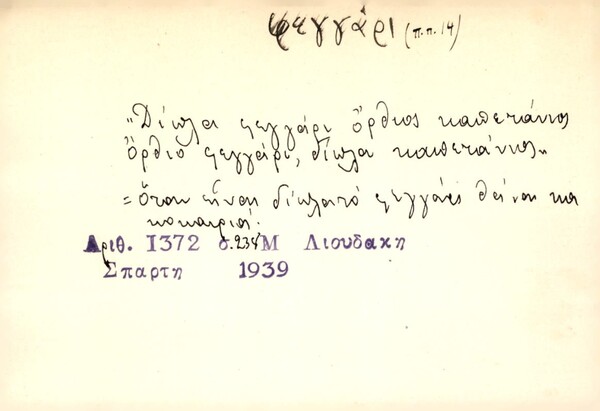 φεγγάρι (π.π. 14)
„Δίπλα φεγγάρι ὄρθιος καπετάνιος
ὄρθιο φεγγάρι, δίπλα καπετάνιος„
= ὅταν εἶναι δίπλα τό φεγγάρι θά ναι κα
κοκαιριά.
Αριθ. 1372 σ. 234 Μ Λιουδακη
Σπαρτη 1939